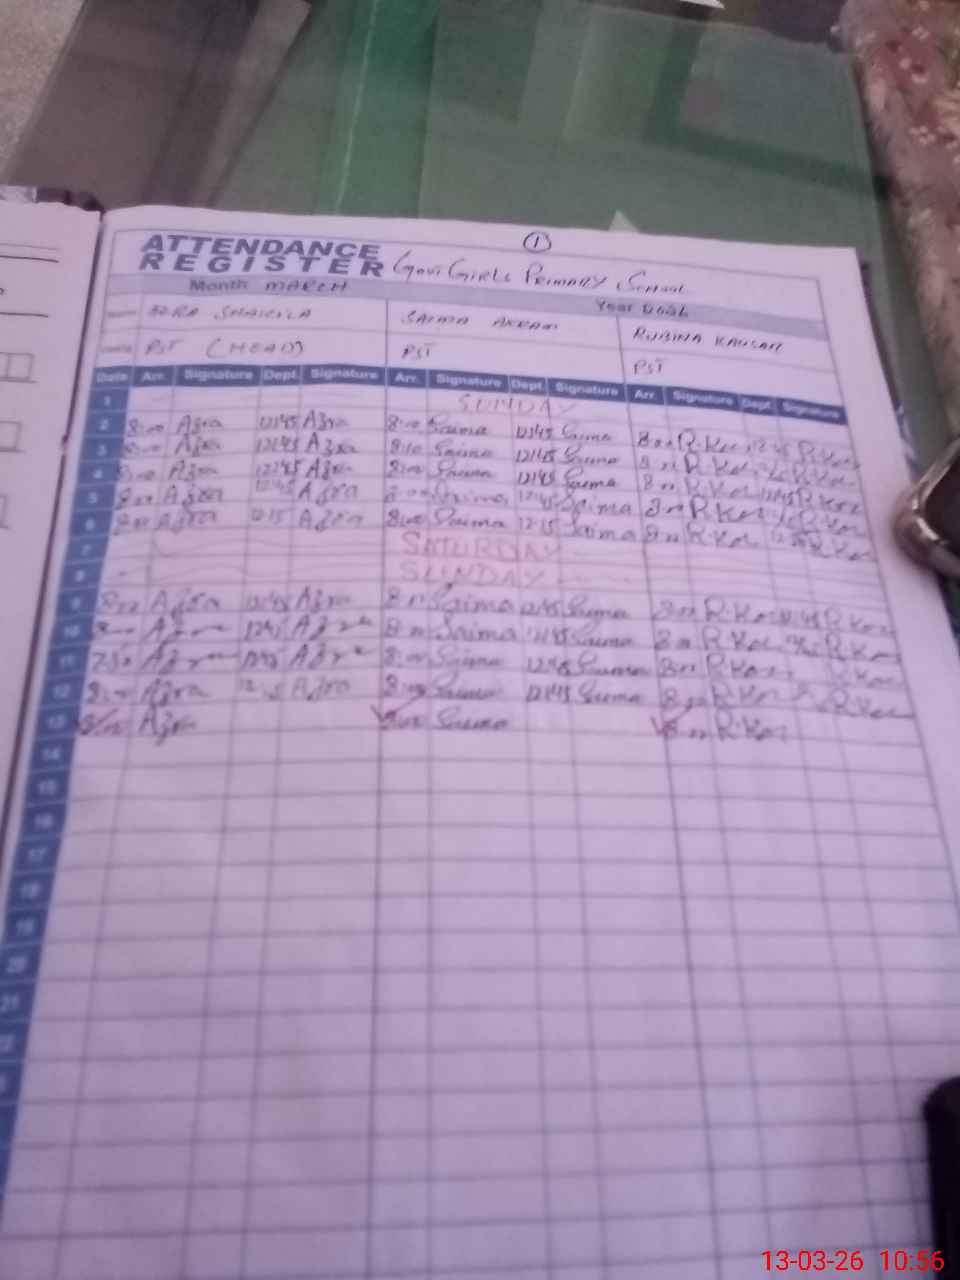 1
ATTENDANCE
REGISTER Govt Girls PRIMARY School
Month MARCH Year 2026
SAIMA AKRAM RUBINA KAUSAR
PST (HEAD) PST PST
Date Arr. Signature Dept. Signature Arr. Signature Dept. Signature Arr. Signature Dept. Signature
1 SUNDAY
2 8:00 Azra 12:45 Azra 8:00 Saima 12:45 Saima 8:00 R.Kor 12:45 R.Kor
3 8:00 Azra 12:45 Azra 8:00 Saima 12:45 Saima 8:00 R.Kor R.Kor
4 8:00 Azra 12:45 Azra 8:00 Saima 12:45 Saima 8:00 R.Kor 12:45 R.Kor
5 8:00 Azra 12:45 Azra 8:00 Saima 12:45 Saima 8:00 R.Kor R.Kor
6 8:00 Azra 12:15 Azra 8:00 Saima 12:15 Saima 8:00 R.Kor R.Kor
7 SATURDAY
8 SUNDAY
9 8:00 Azra 12:45 Azra 8:00 Saima 12:45 Saima 8:00 R.Kor 12:45 R.Kor
10 8:00 Azra 12:45 Azra 8:00 Saima 12:45 Saima 8:00 R.Kor R.Kor
11 7:50 Azra 12:45 Azra 8:00 Saima 12:45 Saima 8:00 R.Kor R.Kor
12 8:00 Azra Azra 8:00 Saima 12:45 Saima 8:00 R.Kor R.Kor
13 8:00 Azra 8:00 Saima 8:00 R.Kor
14
15
16
17
18
19
20
21
13-03-26 10:56